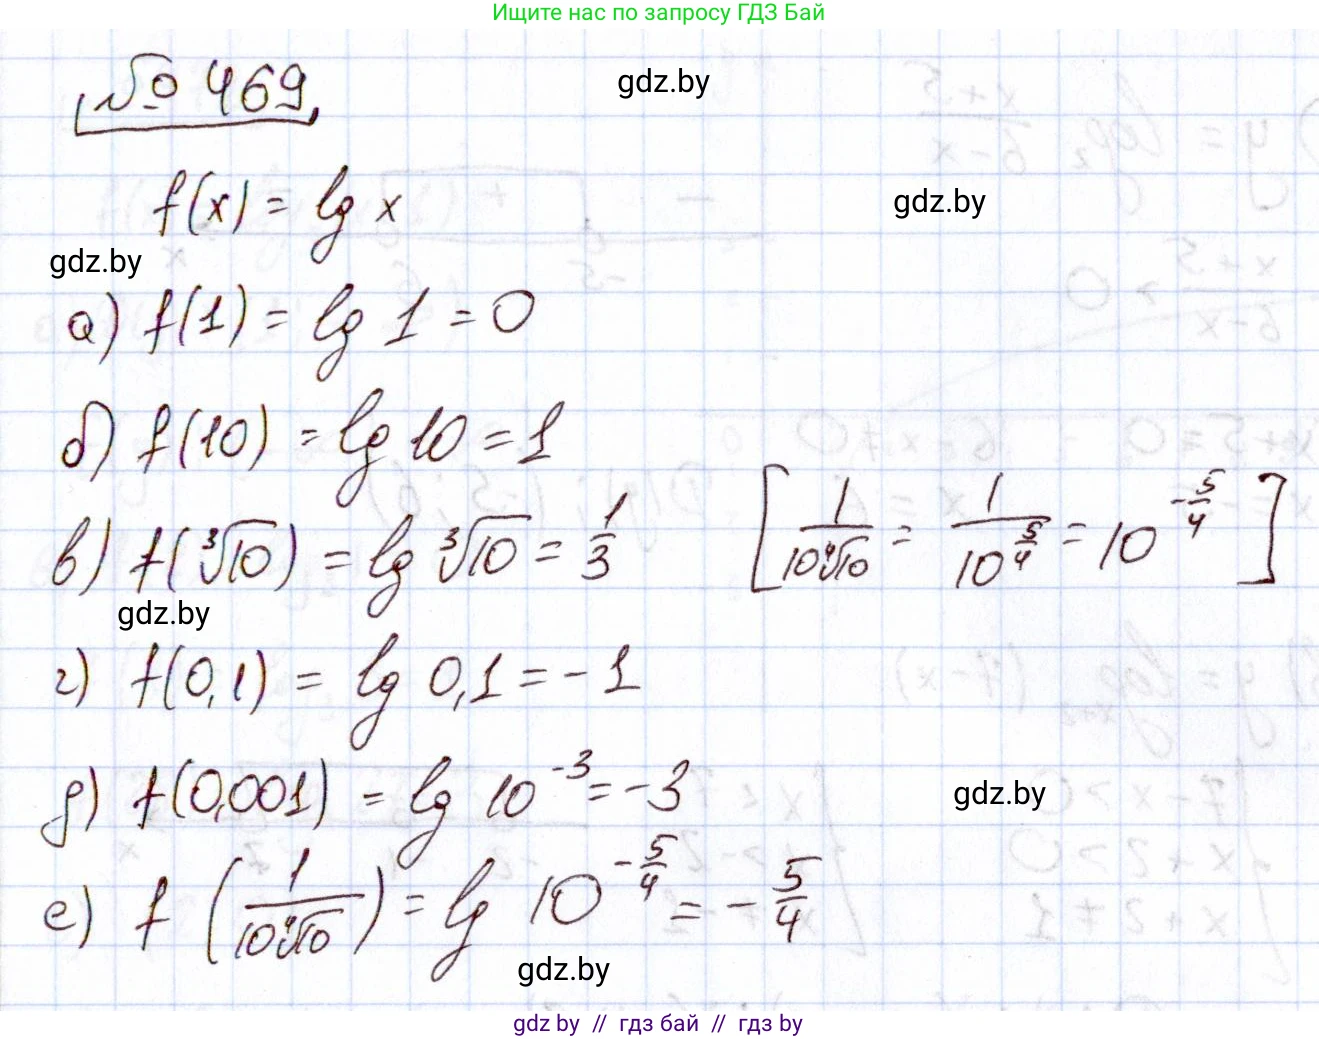 Ищите нас по запросу ГДЗ Бай
№ 469
gdz.by
f(x) = lg x
gdz.by
gdz.by
а) f(1) = lg 1 = 0
б) f(10) = lg 10 = 1
в) f(∛10) = lg ∛10 = 1/3 [1/(10∜10) = 1/10^(5/4) = 10^(-5/4)]
gdz.by
г) f(0,1) = lg 0,1 = -1
д) f(0,001) = lg 10^(-3) = -3
gdz.by
е) f(1/(10∜10)) = lg 10^(-5/4) = -5/4
gdz.by
gdz by // гдз бай // gdz by